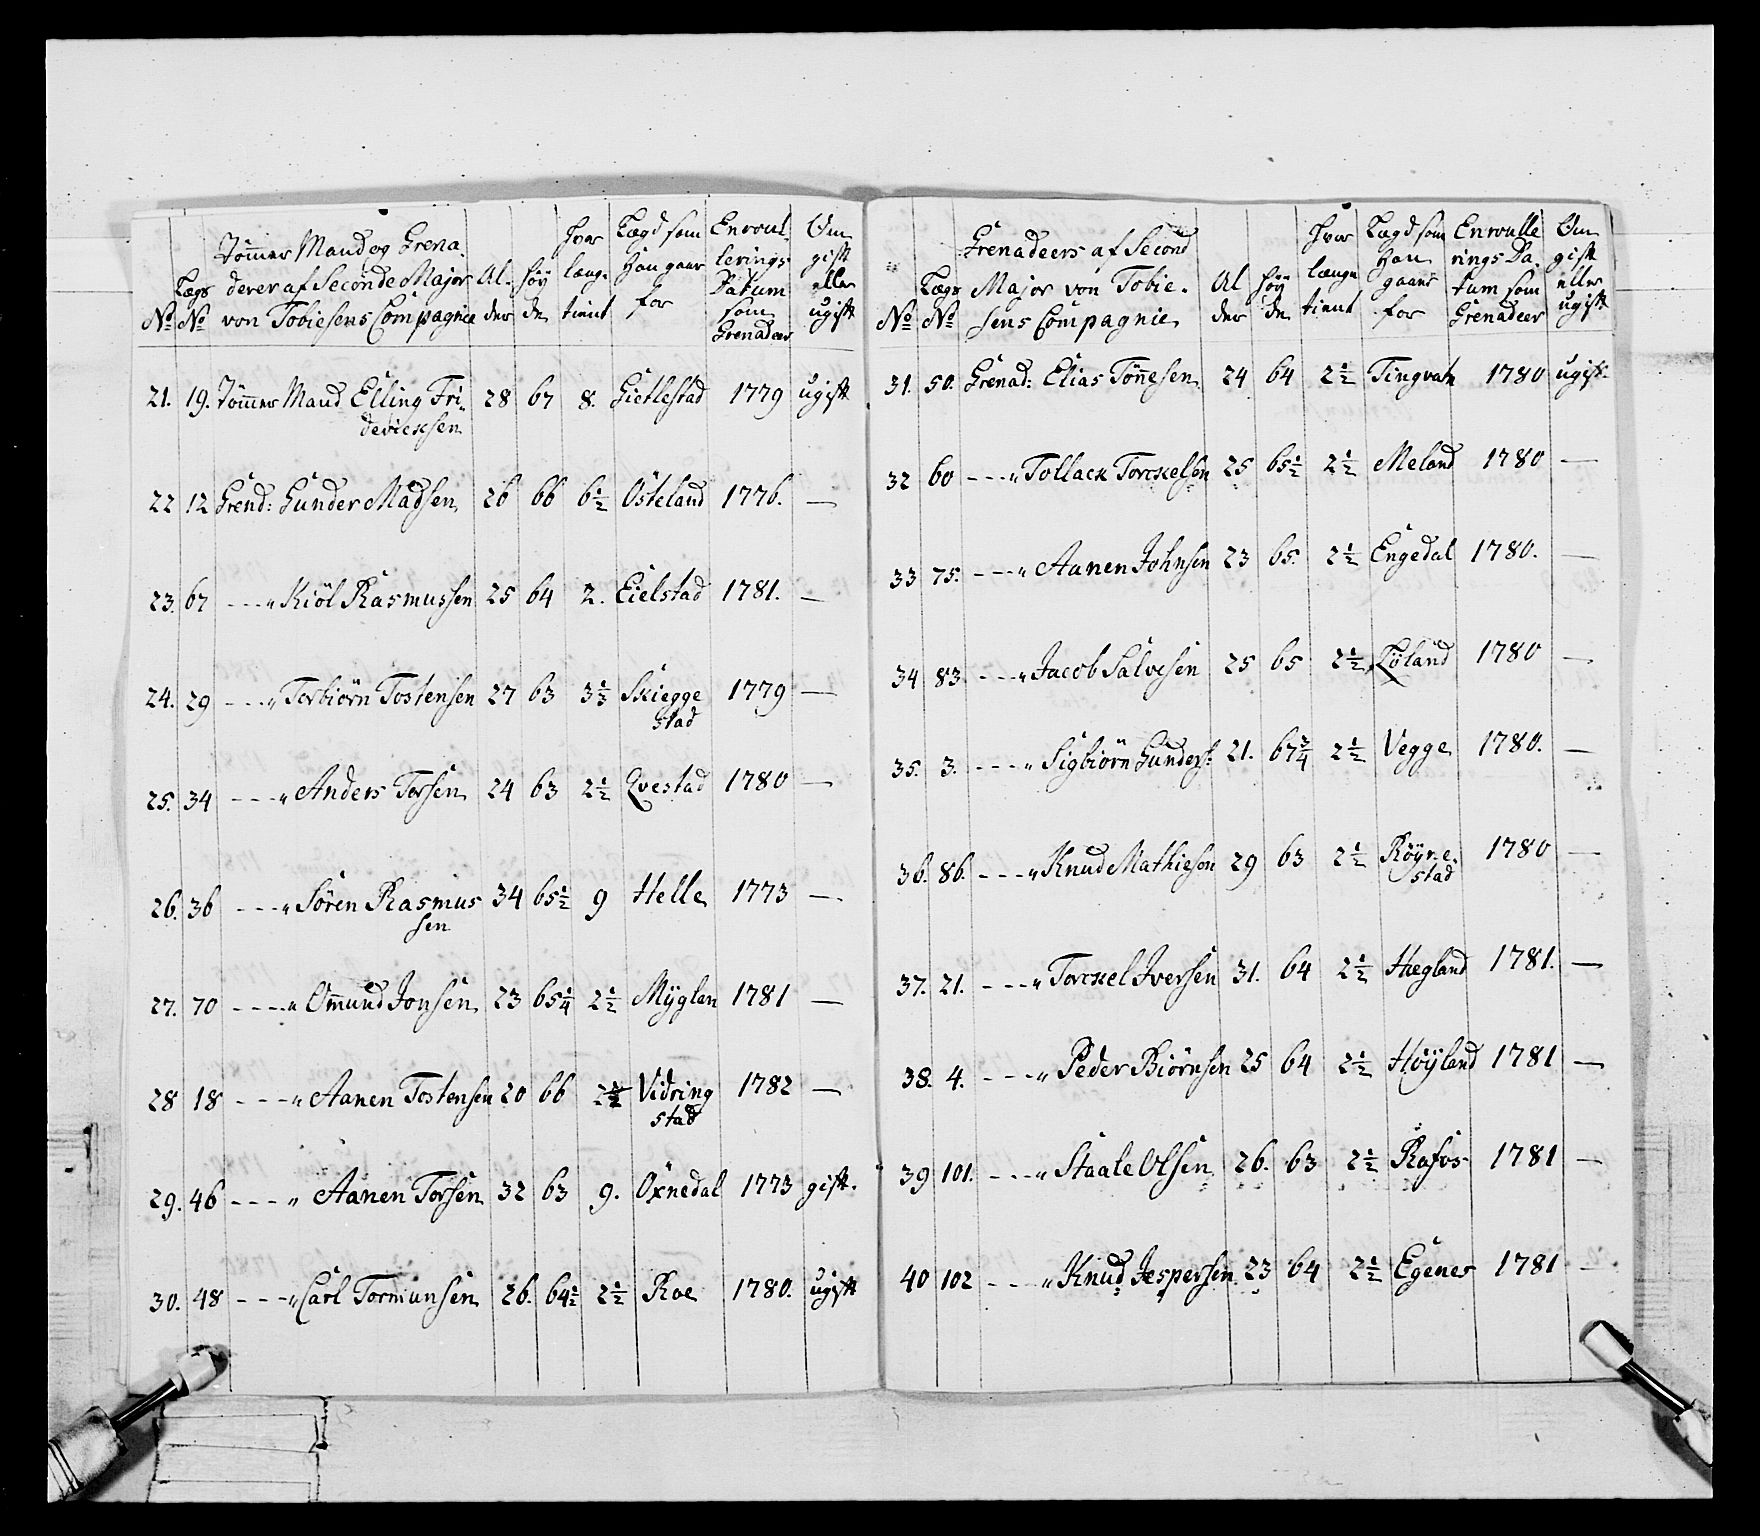 No Lægs No Tømer Mand og Grenaderer af Seconde Major von Tobiesens Compagnie Alder Høyde hvor længe tient Lægd som Han gaar for Enroulerings Datum som Grenadeer Om gift eller ugift
21. 19. Tømer Mand Elling Fridericksen 28 67 8. Gietlestad 1779 ugift
22 12 Grend: Gunder Madsen 26 66 6½ Østeland 1776. —
23. 67 ---„ Kiøl Rasmussen 25 64 2. Eielstad 1781. —
24. 29 ---„ Torbiørn Tostensen 27 63 3½ Skieggestad 1779 —
25. 34 ---„ Anders Torsen 24 63 2½ Qvestad 1780 —
26. 36 ---„ Søren Rasmussen 34 65½ 9 Helle 1773 —
27. 70 ----„ Omund Jonsen 23 65¼ 2½ Mÿglan 1781 —
28 18 ----„ Aanen Tostensen 20 66 Vidringstad 1782 —
29. 46 ---„ Aanen Torsen 32 63 9. Oxnedal 1773 gift.
30. 48 ---„ Carl Tormunsen 26. 64½ 2½ Roe 1780. ugift
No Lægs No Grenadeers af Second Major von Tobiesens Compagnie Alder høyde hvor længe tient Lægd som Han gaaer for Enroullerings Datum som Grenadeer Om gift eller ugift
31. 50. Grenad: Elias Tønesen 24 64 2½ Tingvatn 1780 ugift.
32 60 ---„ Tollack Torckelsen 25 65½ 2½ Meland 1780 —
33 75. ---„ Aanen Johnsen 23 65. 2½ Engedal 1780. —
34 83 ---„ Jacob Salvesen 25 65 2½ Løland 1780 —
35. 3. ----„ Sigbiørn Gunders: 21. 67¾ 2½ Vegge 1780. —
36. 86. ---„ Knud Mathiesen 29 63 2½ Røyrestad 1780 —
37. 21. ---„ Torckel Iversen 31. 64 2½ Hægland 1781. —
38. 4. ---„ Peder Biørnsen 25 64 2½ Høÿland 1781 —
39 101. ---„ Staale Olsen 26. 63 2½ Rafos 1781 —
40 102 ---„ Knud Jespersen 23 64 2½ Egenes 1781 —